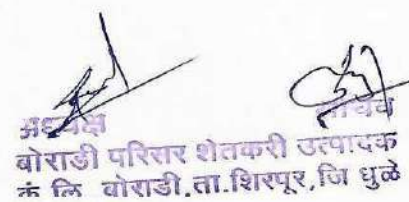 अध्यक्ष सचिव
बोराडी परिसर शेतकरी उत्पादक
कं लि. बोराडी,ता.शिरपूर,जि धुळे